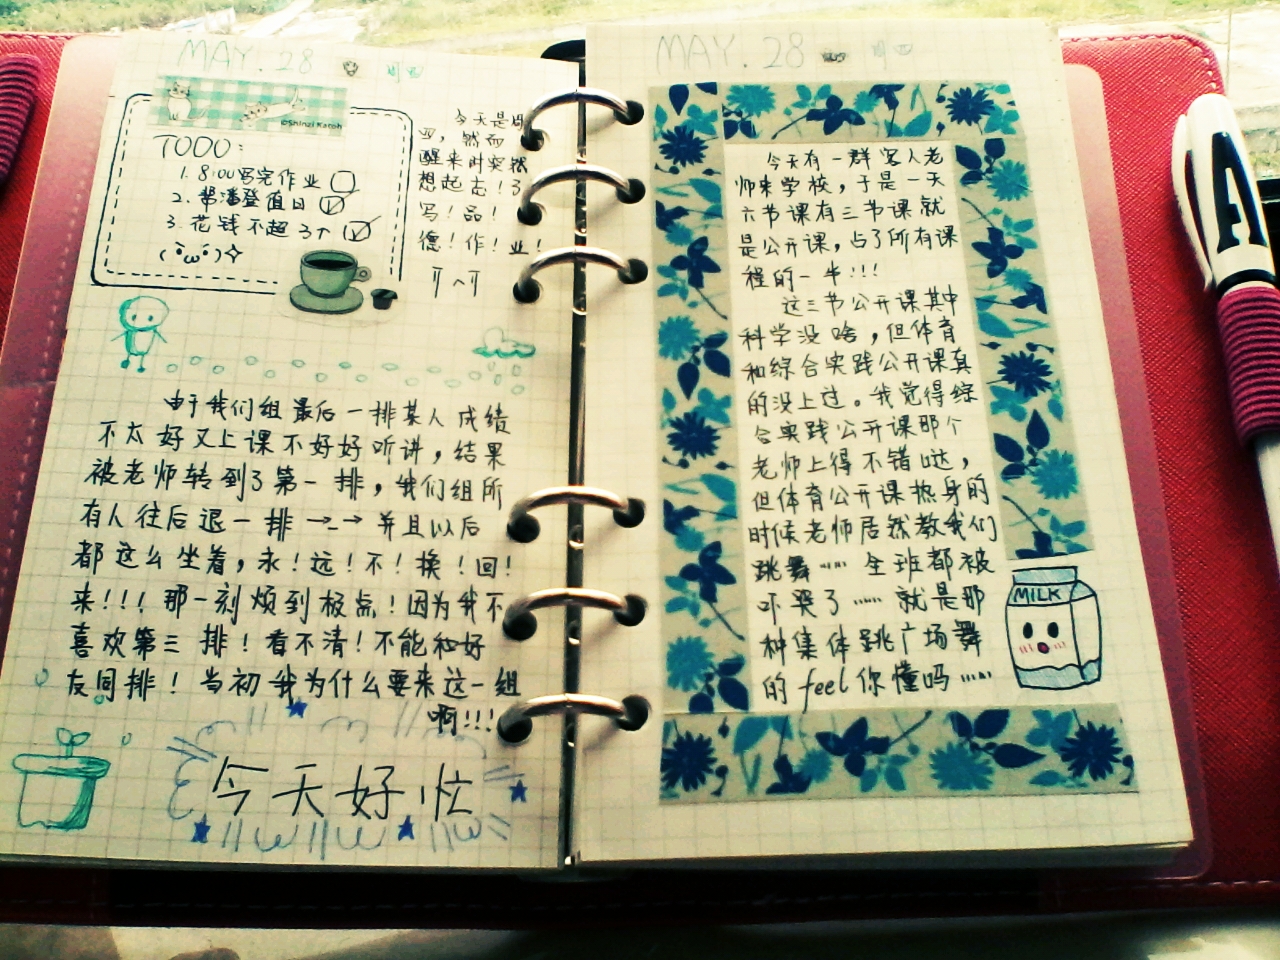 MAY.28 周四
©Shinzi Katoh
TODO:
1. 8:00写完作业
2. 帮潘登值日
3. 花钱不超3个
(･ω･)✧
今天是周
四，然而
醒来时突然
想起忘！了
写！品！
德！作！业！
╥^╥
由于我们组最后一排某人成绩
不太好又上课不好好听讲，结果
被老师转到了第一排，我们组所
有人往后退一排→_→并且以后
都这么坐着，永！远！不！换！回！
来！！！那一刻烦到极点！因为我不
喜欢第三排！看不清！不能和好
友同排！当初我为什么要来这一组
啊！！！
今天好忙
MAY.28 周四
今天有一群客人老
师来学校，于是一天
六节课有三节课就
是公开课，占了所有课
程的一半！！！
这三节公开课其中
科学没啥，但体育
和综合实践公开课真
的没上过。我觉得综
合实践公开课那个
老师上得不错哒，
但体育公开课热身的
时候老师居然教我们
跳舞……全班都被
吓哭了……就是那
种集体跳广场舞
的feel你懂吗……
MILK
A